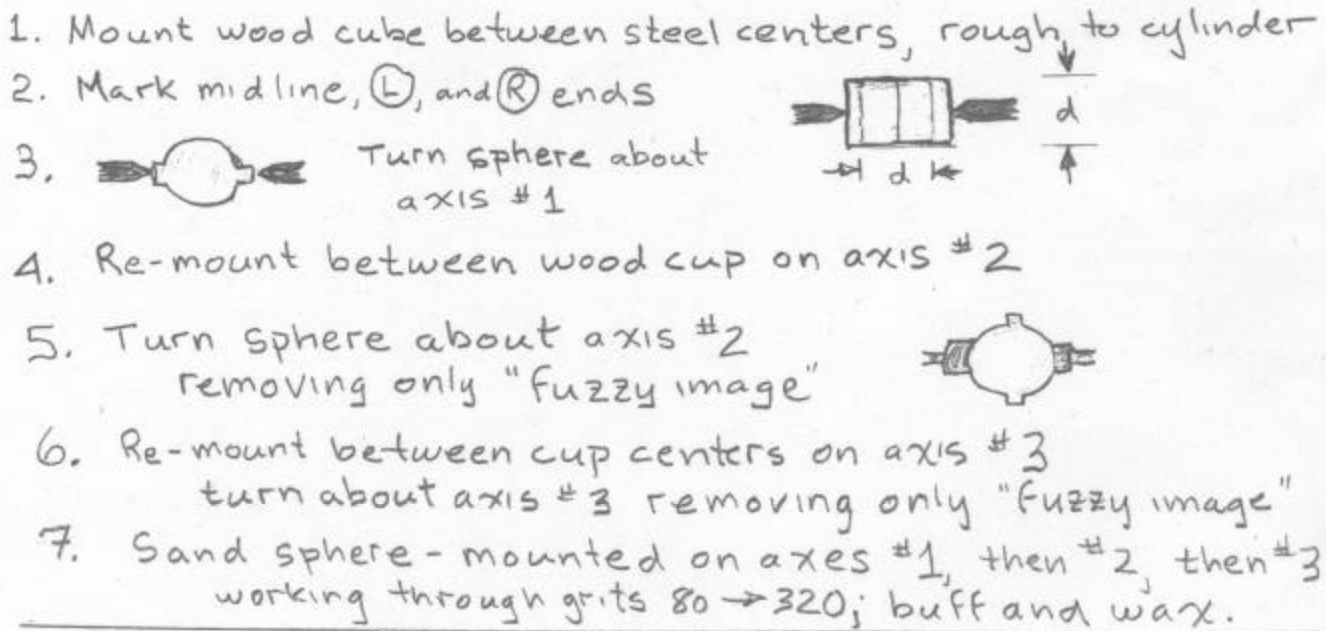 1. Mount wood cube between steel centers, rough to cylinder
2. Mark midline, Ⓛ, and Ⓡ ends
d
d
3. Turn sphere about
axis #1
4. Re-mount between wood cup on axis #2
5. Turn sphere about axis #2
removing only "fuzzy image"
6. Re-mount between cup centers on axis #3
turn about axis #3 removing only "fuzzy image"
7. Sand sphere - mounted on axes #1, then #2, then #3
working through grits 80 → 320; buff and wax.